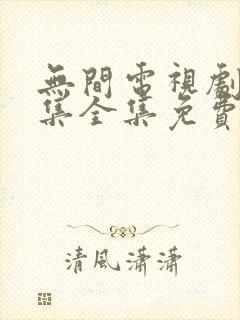 無間電視劇
集全集免費
清風瀟瀟